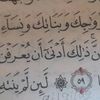 وَٰجِكَ وَبَنَاتِكَ وَنِسَآءِ
ذَٰلِكَ أَدْنَىٰٓ أَن يُعْرَفْنَ
٥٩ ۞ لَّئِن لَّمْ يَنتَهِ